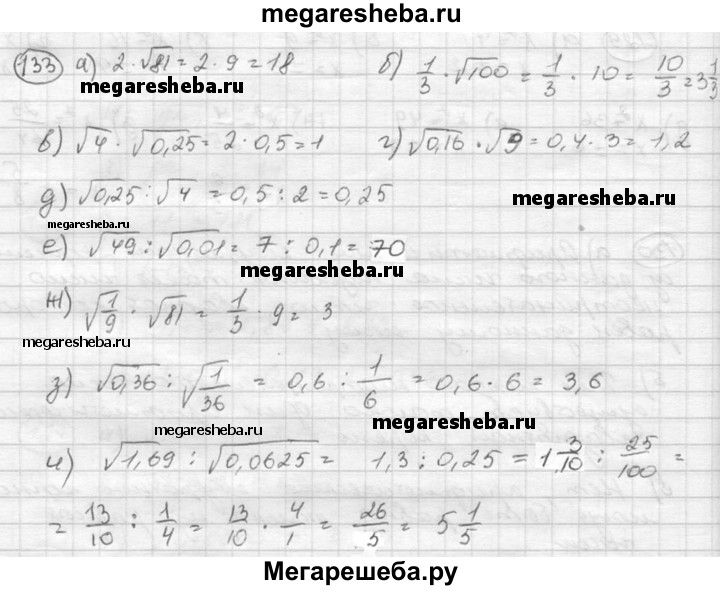 megaresheba.ru
133 а) 2 · √81 = 2 · 9 = 18 б) 1/3 · √100 = 1/3 · 10 = 10/3 = 3 1/3
megaresheba.ru
в) √4 · √0,25 = 2 · 0,5 = 1 г) √0,16 · √9 = 0,4 · 3 = 1,2
д) √0,25 : √4 = 0,5 : 2 = 0,25
megaresheba.ru
megaresheba.ru
е) √49 : √0,01 = 7 : 0,1 = 70
megaresheba.ru
ж) √1/9 · √81 = 1/3 · 9 = 3
megaresheba.ru
з) √0,36 : √1/36 = 0,6 : 1/6 = 0,6 · 6 = 3,6
megaresheba.ru
megaresheba.ru
и) √1,69 : √0,0625 = 1,3 : 0,25 = 1 3/10 : 25/100 =
= 13/10 : 1/4 = 13/10 · 4/1 = 26/5 = 5 1/5
Мегарешеба.ру